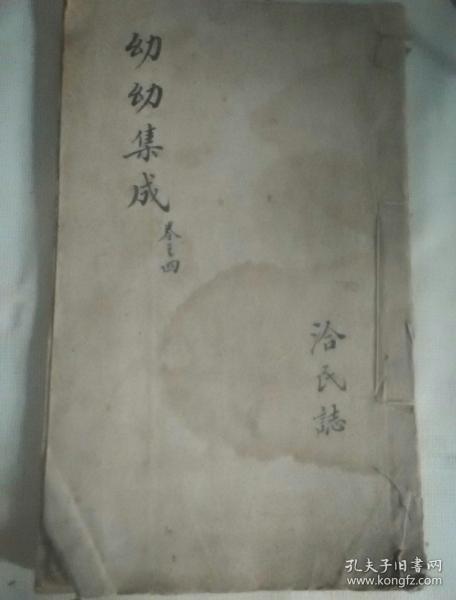 幼幼集成
卷之四
洽民誌
孔夫子旧书网
www.kongfz.com